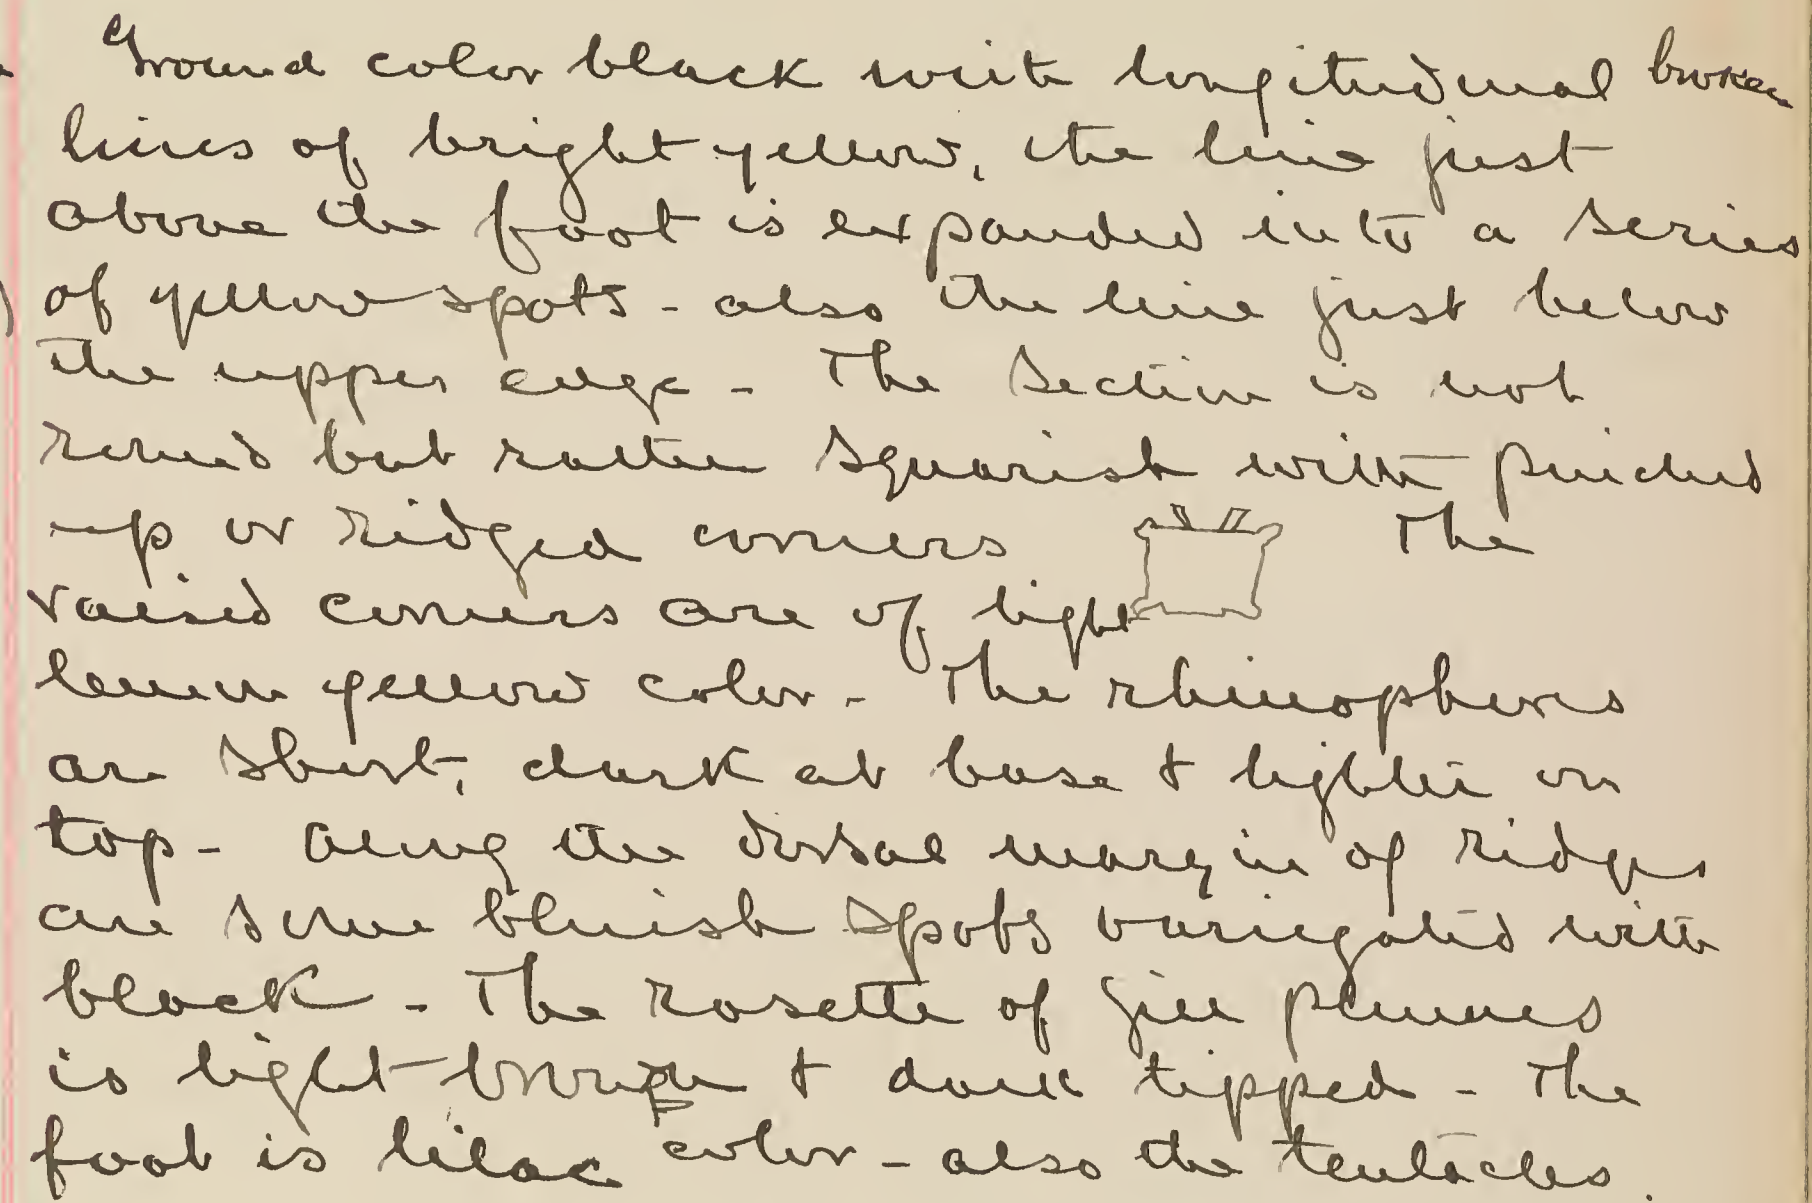 Ground color black with longitudinal broken
lines of bright yellow, the line just
above the foot is expanded into a series
of yellow spots - also the line just below
the upper edge - The section is not
round but rather squarish with pinched
up or ridged corners The
raised corners are of light
lemon yellow color - The rhinophores
are short, dark at base & lighter on
top - Along the dorsal margin of ridges
are some bluish spots variegated with
black - The rosette of gill plumes
is light brown & dark tipped - The
foot is lilac color - also the tentacles.